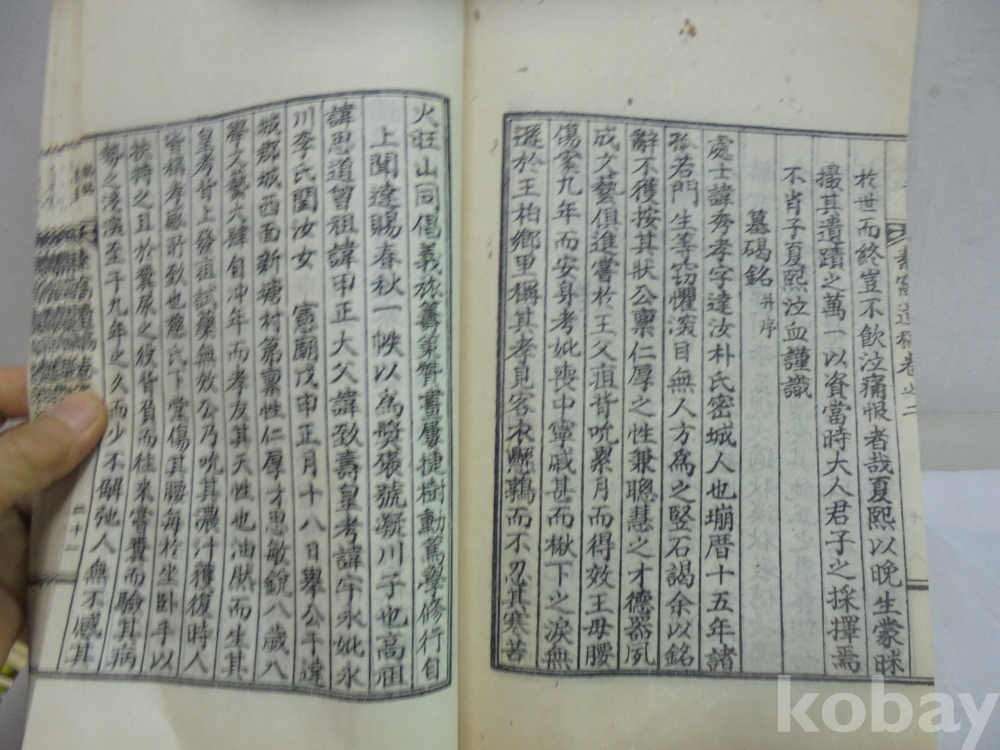 遺稿卷之二
於世而終豈不飮泣痛恨者哉夏熙以晩生蒙昧
撮其遺蹟之萬一以資當時大人君子之採擇焉
不肖子夏熙泣血謹識
墓碣銘 幷序
處士諱秀孝字達汝朴氏密城人也堋曆十五年諸
孫若門生等窃懼滾目無人方為之竪石謁余以銘
辭不獲按其狀公稟仁厚之性兼聰慧之才德器夙
成文藝俱進嘗於王父疽背吮累月而得效王母腰
傷案九年而安身考妣喪中寧戚甚而楸下之淚無
遜於王柏鄉里稱其孝見客衣懸鶉而不忍其寒苦
火旺山同倡義旅籌策贊畫屢捷樹勳篤學修行自
上聞達賜春秋一帙以為褒號凝川子也高祖
諱思道曾祖諱申正大父諱致壽皇考諱宇永妣永
川李氏閏汝女 憲廟戊申正月十八日擧公于達
城郡城西面新塘村第稟性仁厚才思敏銳八歲八
學文藝大肆自冲年而孝友其天性也油然而生其
皇考背上發疽試藥無效公乃吮其濃汁獲復時人
皆稱孝感所致也施氏下堂傷其腰每於坐卧手以
扶持之且於糞尿之役皆負而往來嘗糞而驗其病
勢之淺深至于九年之久而少不解弛人無不感其
二十一
kobay